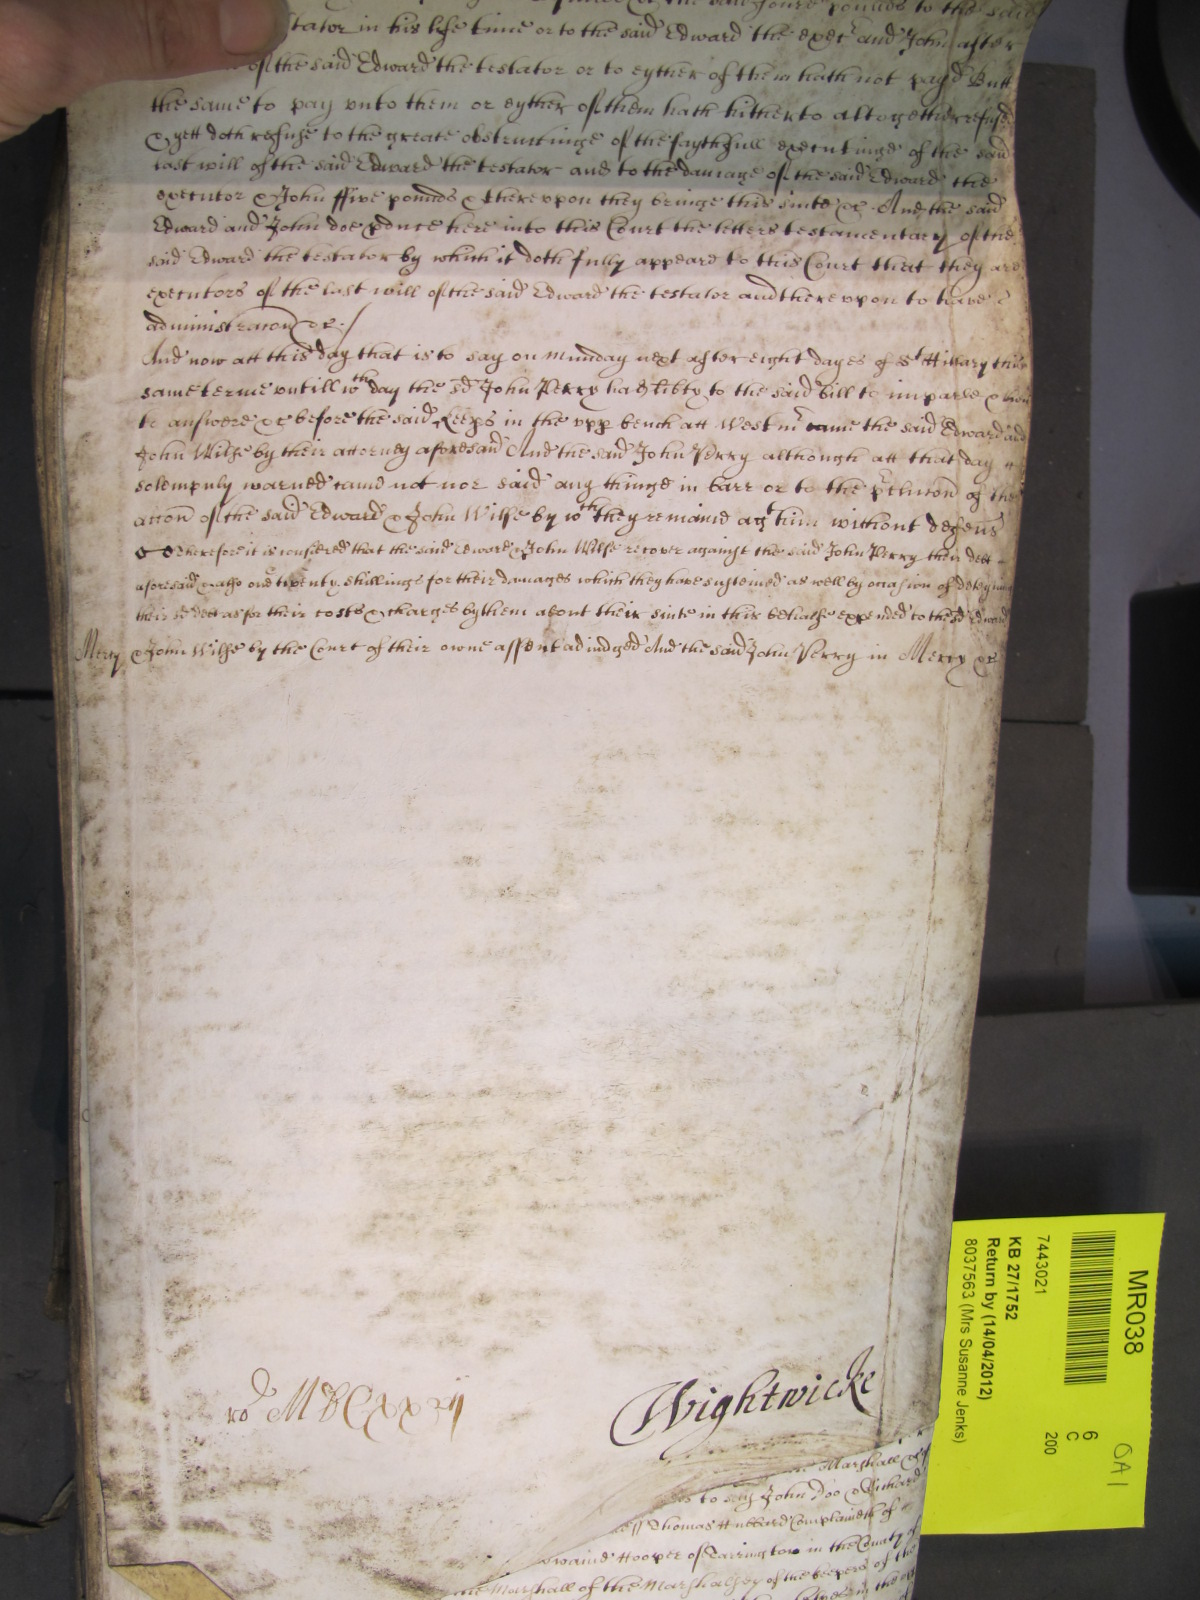 the said foure pounds to the said
tator in his life time or to the said Edward the exec^r and John after
of the said Edward the testator or to eyther of them hath not payd Butt
the same to pay vnto them or eyther of them hath hitherto altogether refused
& yett doth refuse to the greate obstructinge of the faythfull executinge of the said
last will of the said Edward the testator and to the damage of the said Edward the
executor & John ffive pounds & therevpon they bringe this suite &c. And the said
Edward and John doe pduce here into this Court the letters testamentary of the
said Edward the testator by which it doth fully appeare to this Court that they are
executors of the last will of the said Edward the testator and therevpon to have
administracon &c./
And now att this day that is to say on Munday next after eight dayes of S^t Hillary this
same terme vntill w^ch day the s^d John Perry had libty to the said bill to imparle &
to answere &c before the said Keeps in the vpp bench att Westm^r came the said Edward and
John Wilse by their attorney aforesaid And the said John Perry although att that day
solempnly warned came not nor said any thinge in barr or to the of the
accon of the said Edward & John Wilse by w^ch they remaind ag^t him without defens
Therefore it is considered that the said Edward & John Wilse recover against the said John Perry their debt
aforesaid & also one & twenty shillings for their damages which they have susteined as well by occasion of deteyning
their s^d debt as for their costs & charges by them about their suite in this behalfe expended to the s^d Edward
Mercy & John Wilse by the Court of their owne assent adiudged And the said John Perry in Mercy &c
ro MDCxxxij
Wightwicke
Marshall
to say John Doo & Richard
Thomas Hubbard Complaineth of
Hooper of Tarrington in the County of
the Marshall of the Marshalsey of the keepers of the
MR038
7443021
KB 27/1752
Return by (14/04/2012)
8037563 (Mrs Susanne Jenks)
6
C
200
OA1